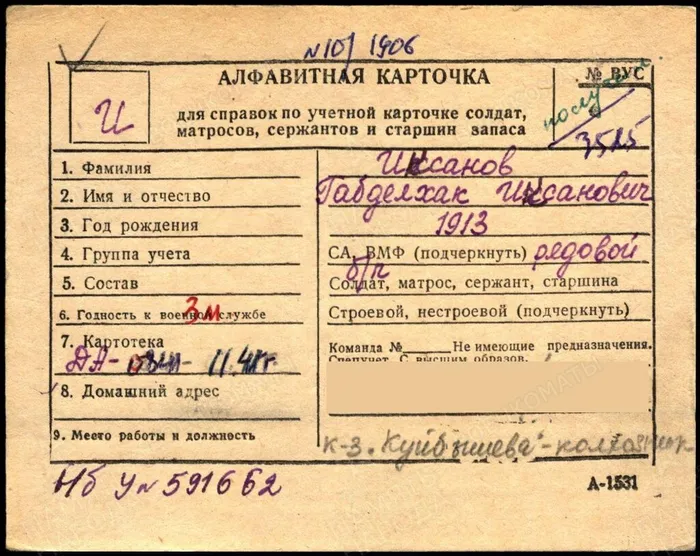 N10/1906
АЛФАВИТНАЯ КАРТОЧКА
№ ВУС
И
для справок по учетной карточке солдат,
матросов, сержантов и старшин запаса
3585
1. Фамилия Иксанов
2. Имя и отчество Габделхак Иксанович
3. Год рождения 1913
4. Группа учета СА, ВМФ (подчеркнуть) рядовой
5. Состав б/п Солдат, матрос, сержант, старшина
6. Годность к военной службе 3м Строевой, нестроевой (подчеркнуть)
7. Картотека Команда №____ Не имеющие предназначения.
ДА- 11.41г. Спецучет. С высшим образов.
8. Домашний адрес
9. Место работы и должность к-з. Куйбышева - колхозник
Нб У№ 591662
А-1531